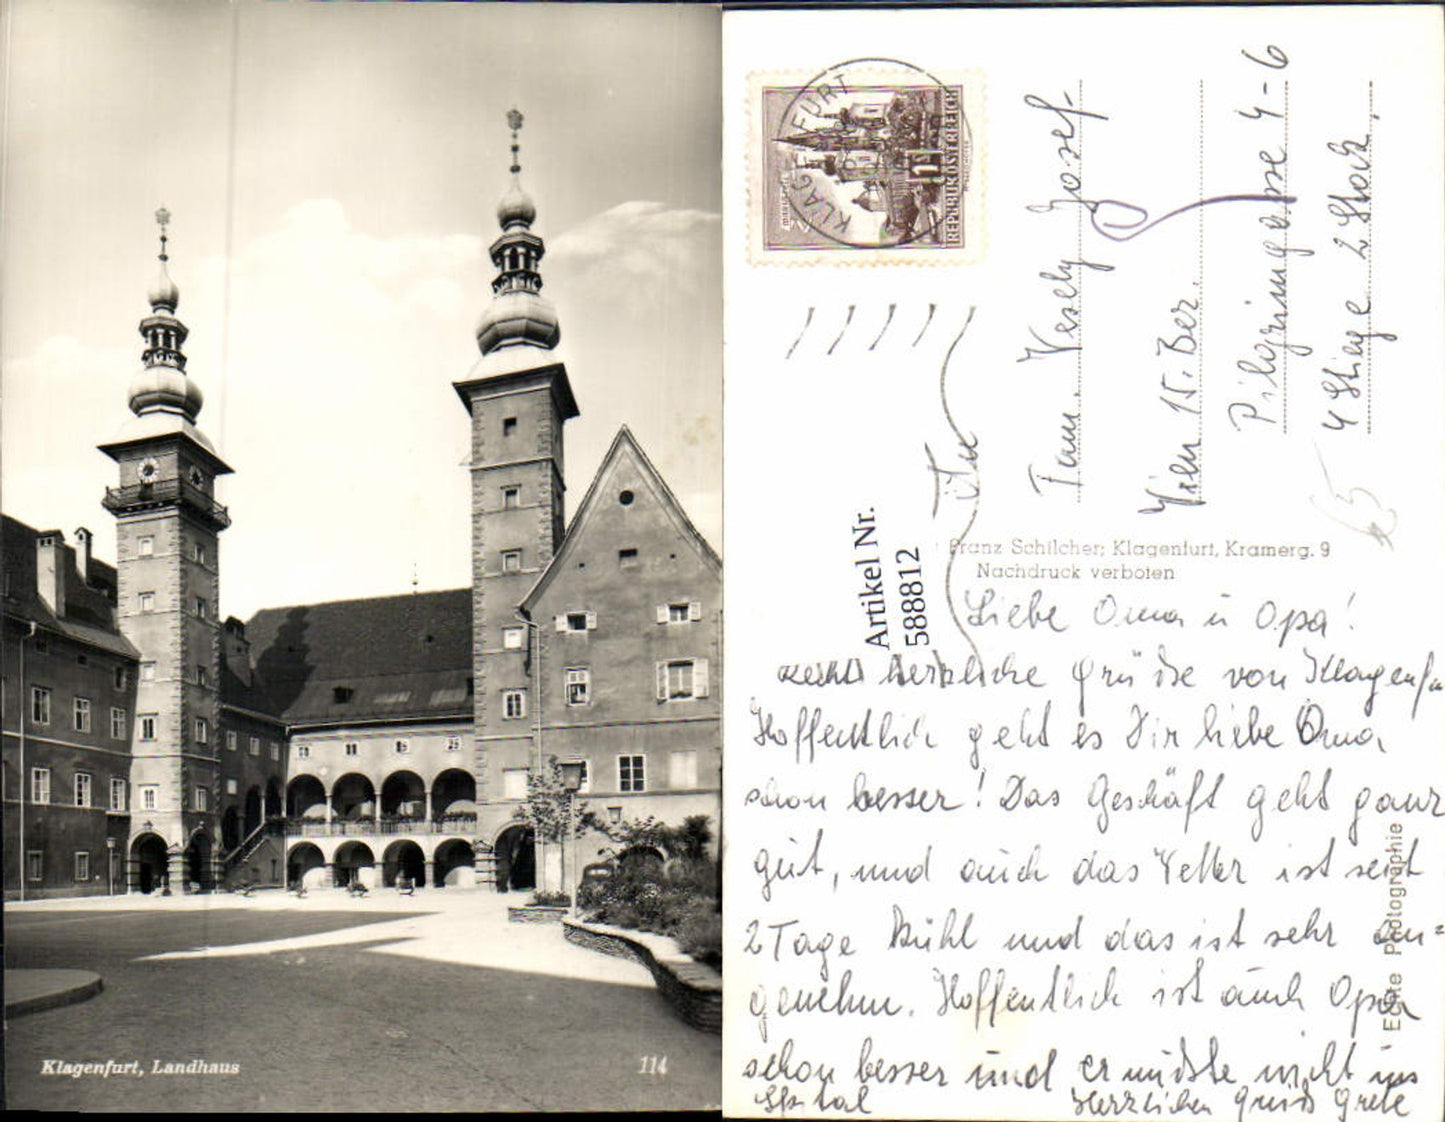 Klagenfurt, Landhaus
114
KLAGENFURT
REPUBLIK ÖSTERREICH
1
Fam. Vesely Josef
Wien 15. Bez.
Pilgrimgasse 4-6
4 Stiege 2 Stock
Artikel Nr.
588812
Franz Schilcher, Klagenfurt, Kramerg. 9
Nachdruck verboten
Echte Photographie
Liebe Oma ü Opa!
recht herzliche Grüsse von Klagenfu
Hoffentlich geht es Dir liebe Oma,
schon besser! Das Geschäft geht ganz
gut, und auch das Wetter ist seit
2 Tage kühl und das ist sehr an=
genehm. Hoffentlich ist auch Opa
schon besser und er müsste nicht ins
Spital
Herzlichen Gruß Grete